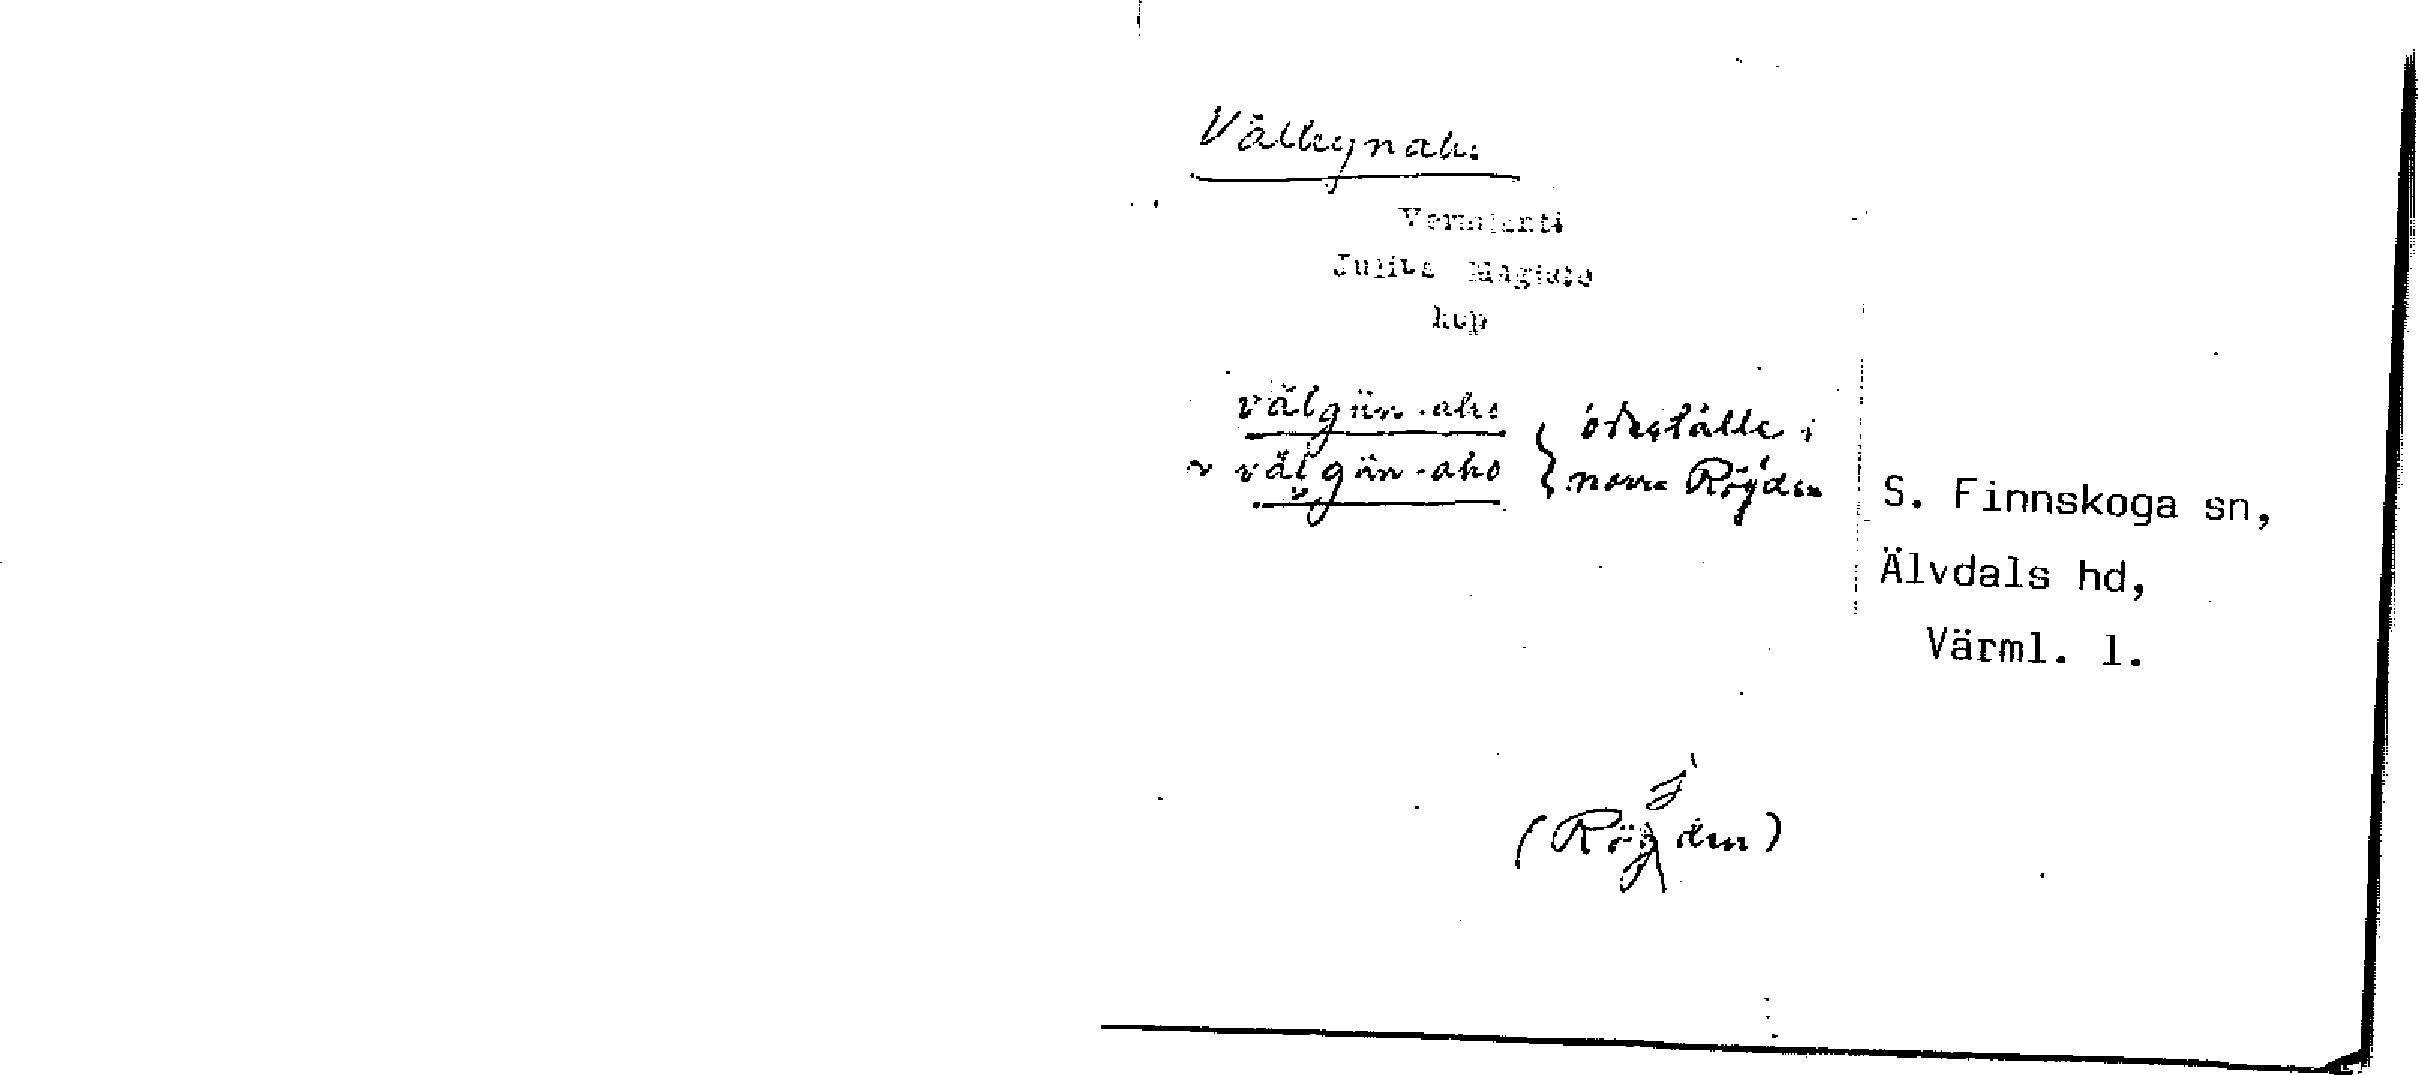 Välkynaho
Vermlanti
Julius Mägiste
kop
välgün-aho
~ väl̬gün-aho
ödeställe i
norra Röjden
S. Finnskoga sn,
Älvdals hd,
Värml. l.
(Rögden)